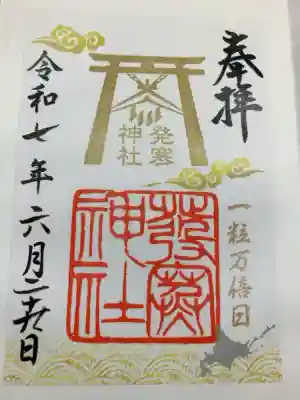 奉拝
発寒
神社
一粒万倍日
発寒
神社
令和七年六月二十六日